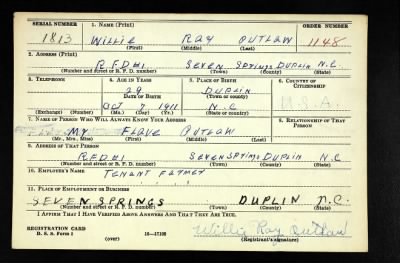 SERIAL NUMBER 1. NAME (Print) ORDER NUMBER
1813 WILLIE RAY OUTLAW 1148
(First) (Middle) (Last)
2. ADDRESS (Print)
R.F.D #1 SEVEN SPRINGS DUPLIN N.C.
(Number and street or R. F. D. number) (Town) (County) (State)
3. TELEPHONE 4. AGE IN YEARS 5. PLACE OF BIRTH 6. COUNTRY OF CITIZENSHIP
29 DUPLIN
DATE OF BIRTH (Town or county) U.S.A.
OCT 7 1911 N.C
(Exchange) (Number) (Mo.) (Day) (Yr.) (State or country)
7. NAME OF PERSON WHO WILL ALWAYS KNOW YOUR ADDRESS 8. RELATIONSHIP OF THAT PERSON
MY FLAVE OUTLAW
(Mr., Mrs., Miss) (First) (Middle) (Last)
9. ADDRESS OF THAT PERSON
R.F.D #1 SEVEN SPRINGS DUPLIN N.C
(Number and street or R. F. D. number) (Town) (County) (State)
10. EMPLOYER'S NAME
TENANT FARMER
11. PLACE OF EMPLOYMENT OR BUSINESS
SEVEN SPRINGS DUPLIN N.C.
(Number and street or R. F. D. number) (Town) (County) (State)
I AFFIRM THAT I HAVE VERIFIED ABOVE ANSWERS AND THAT THEY ARE TRUE.
REGISTRATION CARD
D. S. S. Form 1 16—17105 Willie Ray Outlaw
(over) (Registrant's signature)